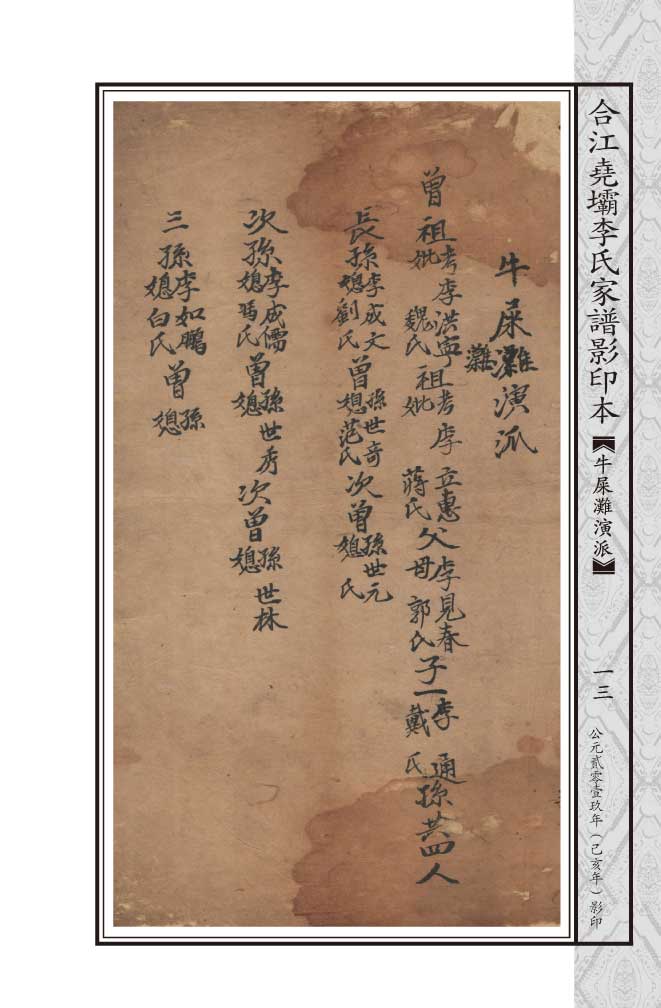 合江堯壩李氏家譜影印本【牛屎灘演派】 一三 公元貳零壹玖年（己亥年）影印
牛屎灘演派
灘
曾祖考李洪寧祖考李立惠父李見春子一李通孫共四人
妣魏氏妣蔣氏母郭氏戴氏
長孫李成文曾孫世奇次曾孫世元
媳劉氏媳范氏媳氏
次孫李成儒曾孫世秀次曾孫世林
媳馮氏媳媳
三孫李如鵬曾孫
媳白氏媳